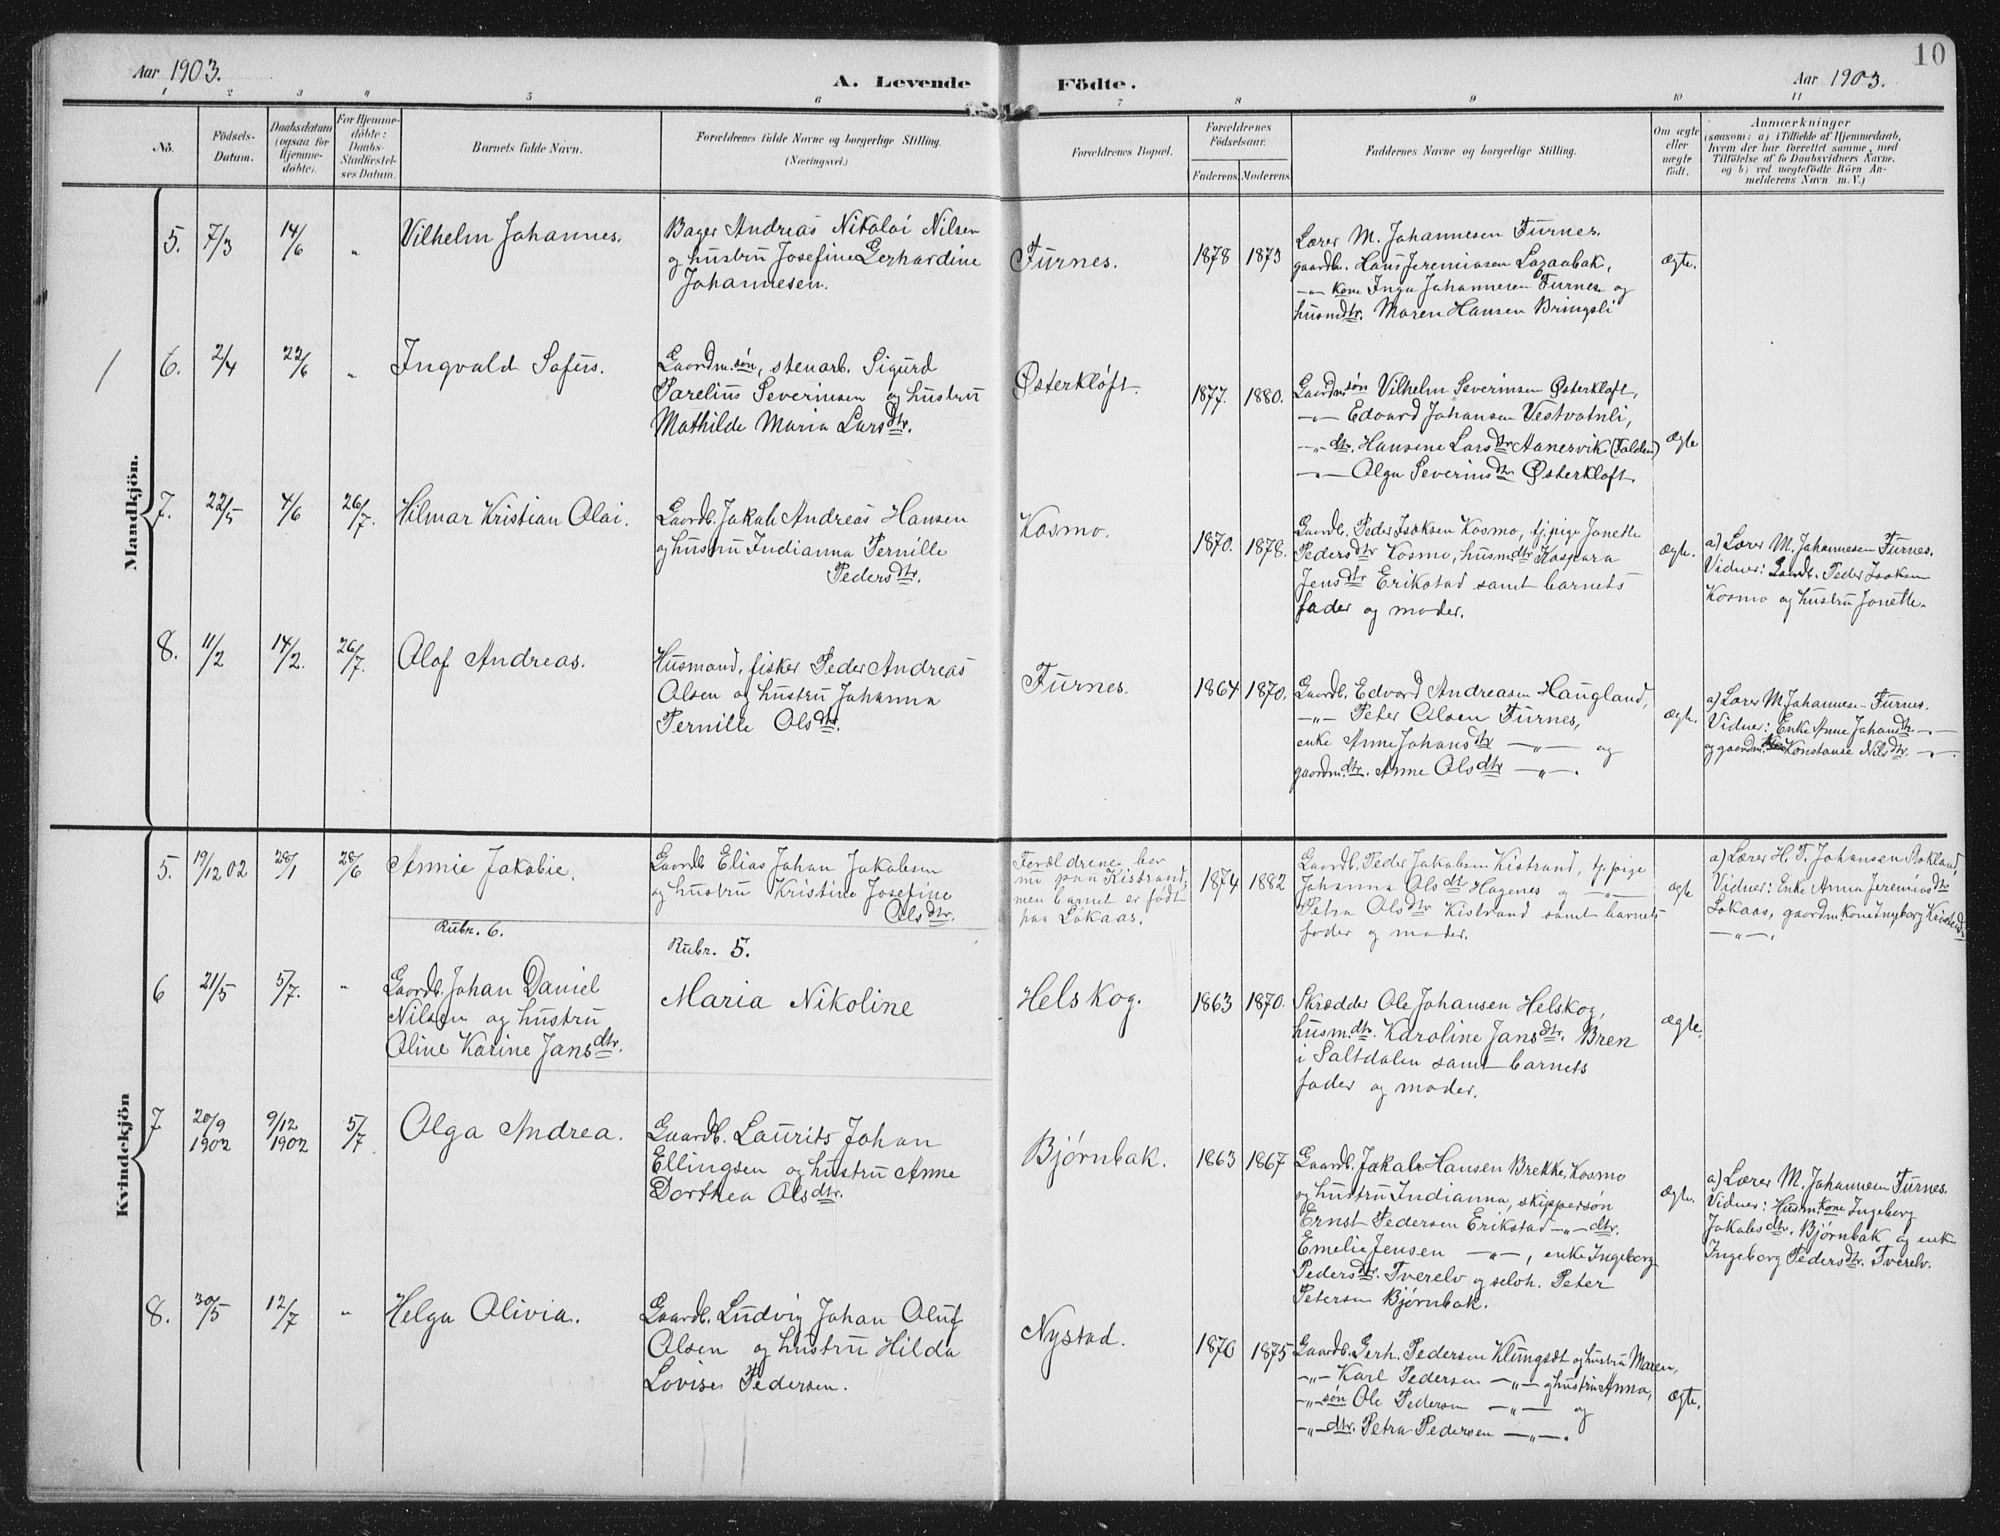 Aar 1903.
A. Levende Födte.
Aar 1903.
10
1 2 3 4 5 6 7 8 9 10 11
No.
Födsels-
Datum.
Daabsdatum
(ogsaa for
Hjemme-
döbte).
For Hjemme-
döbte:
Daabs-
Stadfæstel-
ses Datum.
Barnets fulde Navn.
Forældrenes fulde Navne og borgerlige Stilling.
(Næringsvei.)
Forældrenes Bopæl.
Forældrenes
Födselsaar.
Faderens. Moderens.
Faddernes Navne og borgerlige Stilling.
Om ægte
eller
uægte
födt.
Anmærkninger
(saasom: a) i Tilfælde af Hjemmedaab,
hvem der har forrettet samme, med
Tilföielse af to Daabsvidners Navne.
og b) ved uægtefödte Börn An-
melderens Navn m. V.)
Mandkjön.
5. 7/3 14/6 " Vilhelm Johannes.
Bager Andreas Nikolai Nilsen
og hustru Josefine Gerhardine
Johannesen.
Furnes.
1878 1873
Lærer M. Johannesen Furnes.
gaardb. Hans Jeremiasen Lazaabak,
-"- kone Inga Johannesen Furnes og
husmdtr. Maren Hansen Bringsli
ægte.
6. 2/4 22/6 " Ingvald Sofus.
Gaardm.søn, stenarb. Sigurd
Parelius Severinsen og hustru
Mathilde Maria Larsdtr.
Østerkløft.
1877. 1880.
Gaardmsøn Vilhelm Severinsen Østerkløft,
-"- Edvard Johansen Vestvatnli,
-"- dtr. Hansine Larsdtr Aanervik (Falden)
-"- Olga Severinsdtr Østerkløft.
ægte
7. 22/5 4/6 26/7. Hilmar Kristian Olai.
Gaardb. Jakob Andreas Hansen
og hustru Indianna Pernille
Pedersdtr.
Kosmo.
1870. 1878.
Gaardb. Peder Isaksen Kosmo, tj.pige Jonette
Pedersdtr Kosmo, husmdtr Kaspara
Jensdtr Erikstad samt barnets
fader og moder.
ægte.
a) Lærer M. Johannesen Furnes.
Vidner: Gaardb. Peder Isaksen
Kosmo og hustru Jonette.
8. 11/2 14/2. 26/7. Olaf Andreas.
Husmand, fisker Peder Andreas
Olsen og hustru Johanna
Pernille Olsdtr.
Furnes.
1864 1870.
Gaardb. Edvard Andreasen Haugland,
-"- Peter Olsen Furnes,
enke Anne Johansdtr -"- og
gaardm.dtr. Anne Olsdtr -"-.
ægte.
a) Lærer M. Johannesen Furnes.
Vidner: Enke Anne Johansdtr -"-
og gaardm. kone Konstanse Nilsdtr. -"-
Kvindekjön
5. 19/12 02 28/1 28/6 Annie Jakobie.
Gaardb Elias Johan Jakobsen
og hustru Kristine Josefine
Olsdtr.
Forældrene bor
nu paa Kistrand,
men barnet er født
paa Løkaas.
1874 1882
Gaardb. Peder Jakobsen Kistrand, tj.pige
Johanna Olsdtr Hagenes og -"-
Petra Olsdtr Kistrand samt barnets
fader og moder.
ægte
a) Lærer H. T. Johansen Rokland,
Vidner: Enke Anna Jeremiasdtr
Løkaas, gaardm.kone Ingeborg
-"-.
Rubr. 6.
Rubr. 5.
6 21/5 5/7. "
Gaardb. Johan Daniel
Nilsen og hustru
Oline Karine Jansdtr.
Maria Nikoline
Helskog.
1863 1870.
Skrædder Ole Johansen Helskog,
husm.dtr. Karoline Jansdtr. Bren
i Saltdalen samt barnets
fader og moder.
ægte.
7 20/9 1902 9/12 1902 5/7 Olga Andrea.
Gaardb. Laurits Johan
Ellingsen og hustru Anne
Dorthea Olsdtr.
Bjørnbak.
1863 1867
Gaardb. Jakob Hansen Brekke, Kosmo
og hustru Indianna, skippersøn
Ernst Pedersen Erikstad -"- dtr.
Emelie Jensen -"-, enke Ingeborg
Pedersdtr. Tverelv og selvh. Peter
Petersen Bjørnbak.
ægte.
a) Lærer M. Johannesen Furnes.
Vidner: Husm.kone Ingeborg
Jakobsdtr. Bjørnbak og enke
Ingeborg Pedersdtr. Tverelv.
8. 30/5 12/7 " Helga Olivia.
Gaardb. Ludvig Johan Oluf
Olsen og hustru Hilda
Lovise Pedersen.
Nystad.
1870 1875
Gaardb. Gerh. Pedersen Klungset og hustru Maren,
-"- Karl Pedersen -"- og hustru Anna,
-"- søn Ole Pedersen -"- og
-"- dtr. Petra Pedersen -"-.
ægte.